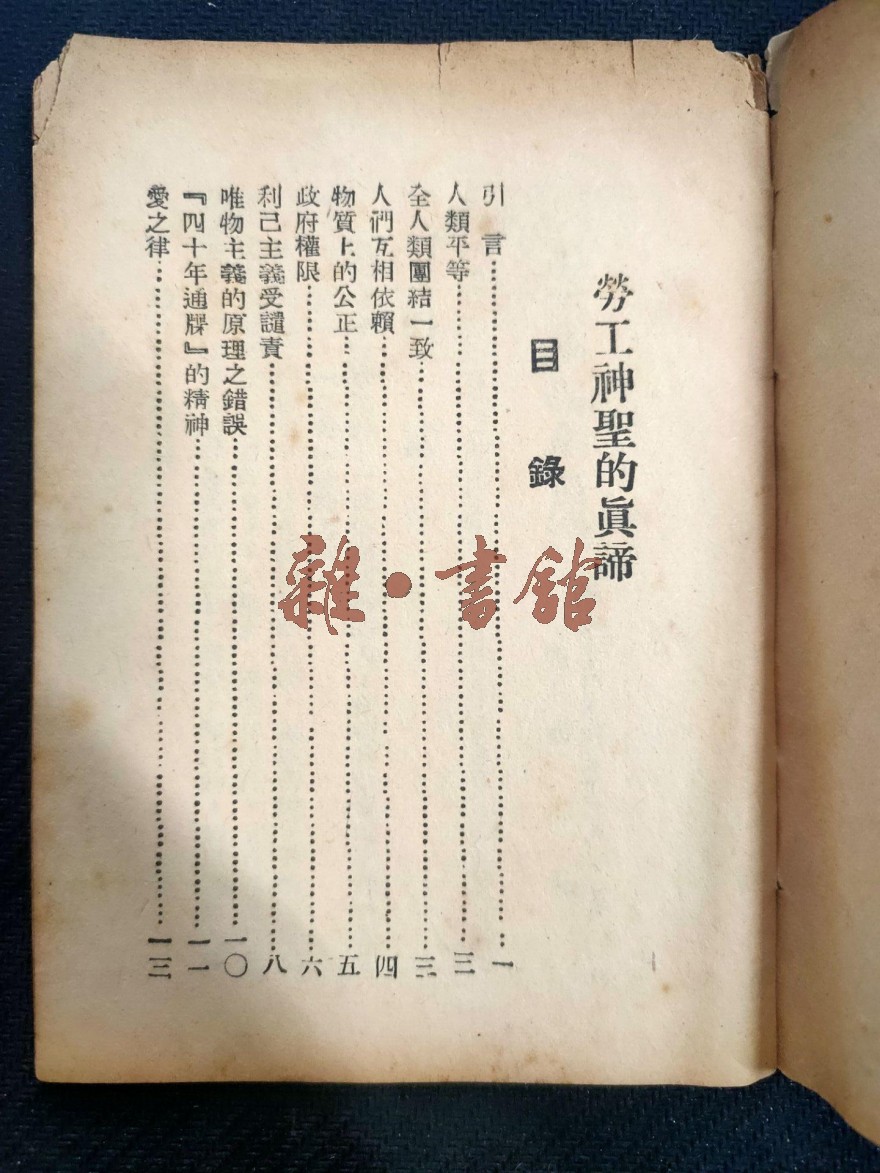 勞工神聖的眞諦
目錄
引言……一
人類平等……三
全人類團結一致……三
人們互相依賴……四
物質上的公正……五
政府權限……六
利己主義受譴責……八
唯物主義的原理之錯誤……一〇
『四十年通牒』的精神……一一
愛之律……一三
雜·書館